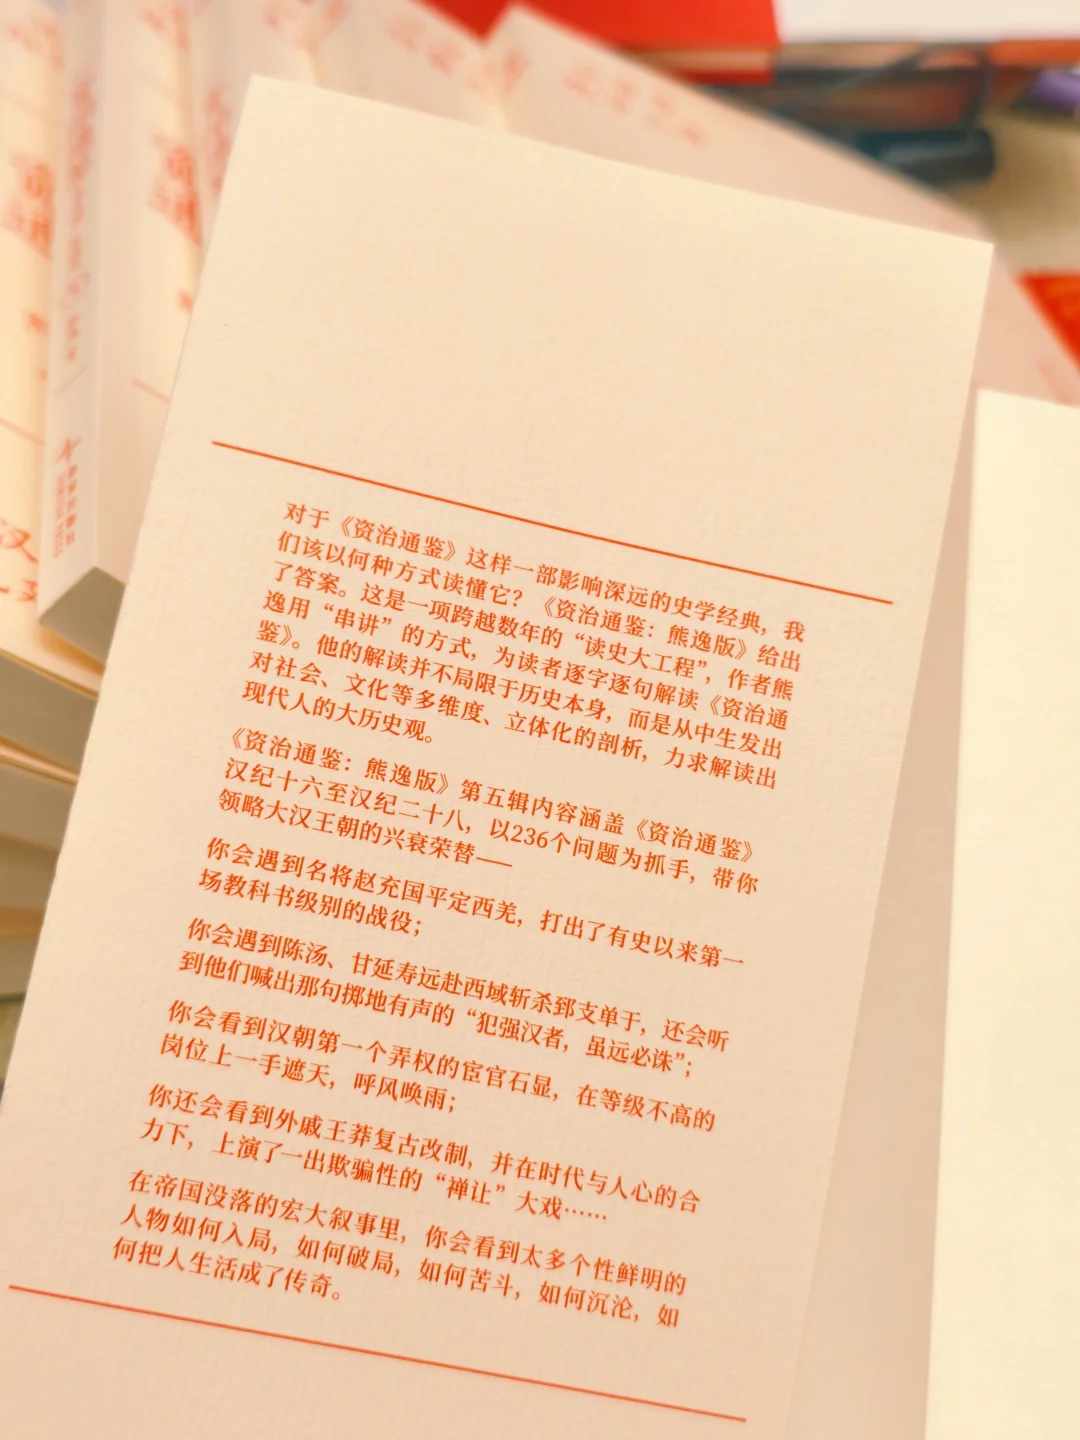 对于《资治通鉴》这样一部影响深远的史学经典，我
们该以何种方式读懂它？《资治通鉴：熊逸版》给出
了答案。这是一项跨越数年的“读史大工程”，作者熊
逸用“串讲”的方式，为读者逐字逐句解读《资治通
鉴》。他的解读并不局限于历史本身，而是从中生发出
对社会、文化等多维度、立体化的剖析，力求解读出
现代人的大历史观。
《资治通鉴：熊逸版》第五辑内容涵盖《资治通鉴》
汉纪十六至汉纪二十八，以236个问题为抓手，带你
领略大汉王朝的兴衰荣替——
你会遇到名将赵充国平定西羌，打出了有史以来第一
场教科书级别的战役；
你会遇到陈汤、甘延寿远赴西域斩杀郅支单于，还会听
到他们喊出那句掷地有声的“犯强汉者，虽远必诛”；
你会看到汉朝第一个弄权的宦官石显，在等级不高的
岗位上一手遮天，呼风唤雨；
你还会看到外戚王莽复古改制，并在时代与人心的合
力下，上演了一出欺骗性的“禅让”大戏……
在帝国没落的宏大叙事里，你会看到太多个性鲜明的
人物如何入局，如何破局，如何苦斗，如何沉沦，如
何把人生活成了传奇。
汉